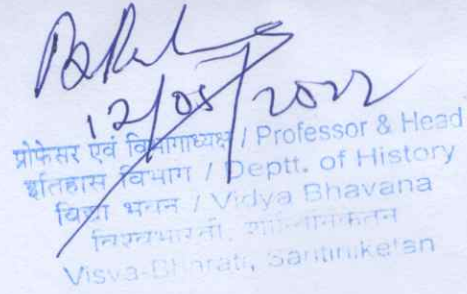 12/05/2022
प्रोफेसर एवं विभागाध्यक्ष / Professor & Head
इतिहास विभाग / Deptt. of History
विद्या भवन / Vidya Bhavana
विश्वभारती, शान्तिनिकेतन
Visva-Bharati, Santiniketan